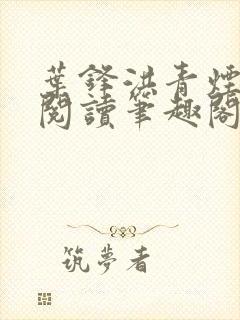 葉鋒洪青煙
閱讀筆趣閣
筑夢者